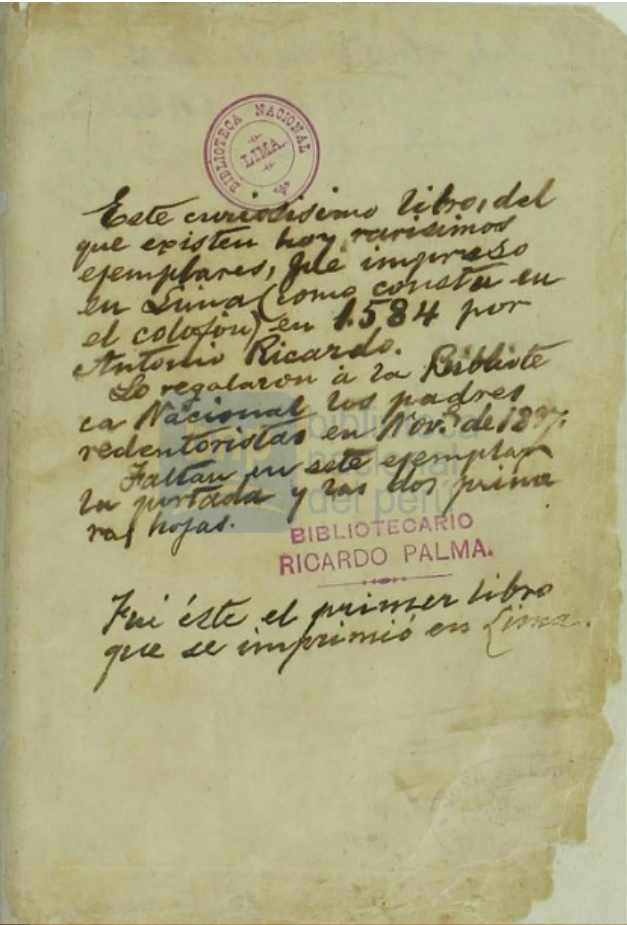 BIBLIOTECA NACIONAL
LIMA
Este curiosisimo libro, del
que existen hoy rarisimos
ejemplares, fué impreso
en Lima (como consta en
el colofón) en 1.584 por
Antonio Ricardo.
Lo regalaron á la Bibliote
ca Nacional los padres
redentoristas en Nov.e de 1897.
Faltan en este ejemplar
la portada y las dos prime
ras hojas.
biblioteca
nacional
del perú
BIBLIOTECARIO
RICARDO PALMA.
Fué éste el primer libro
que se imprimió en Lima.